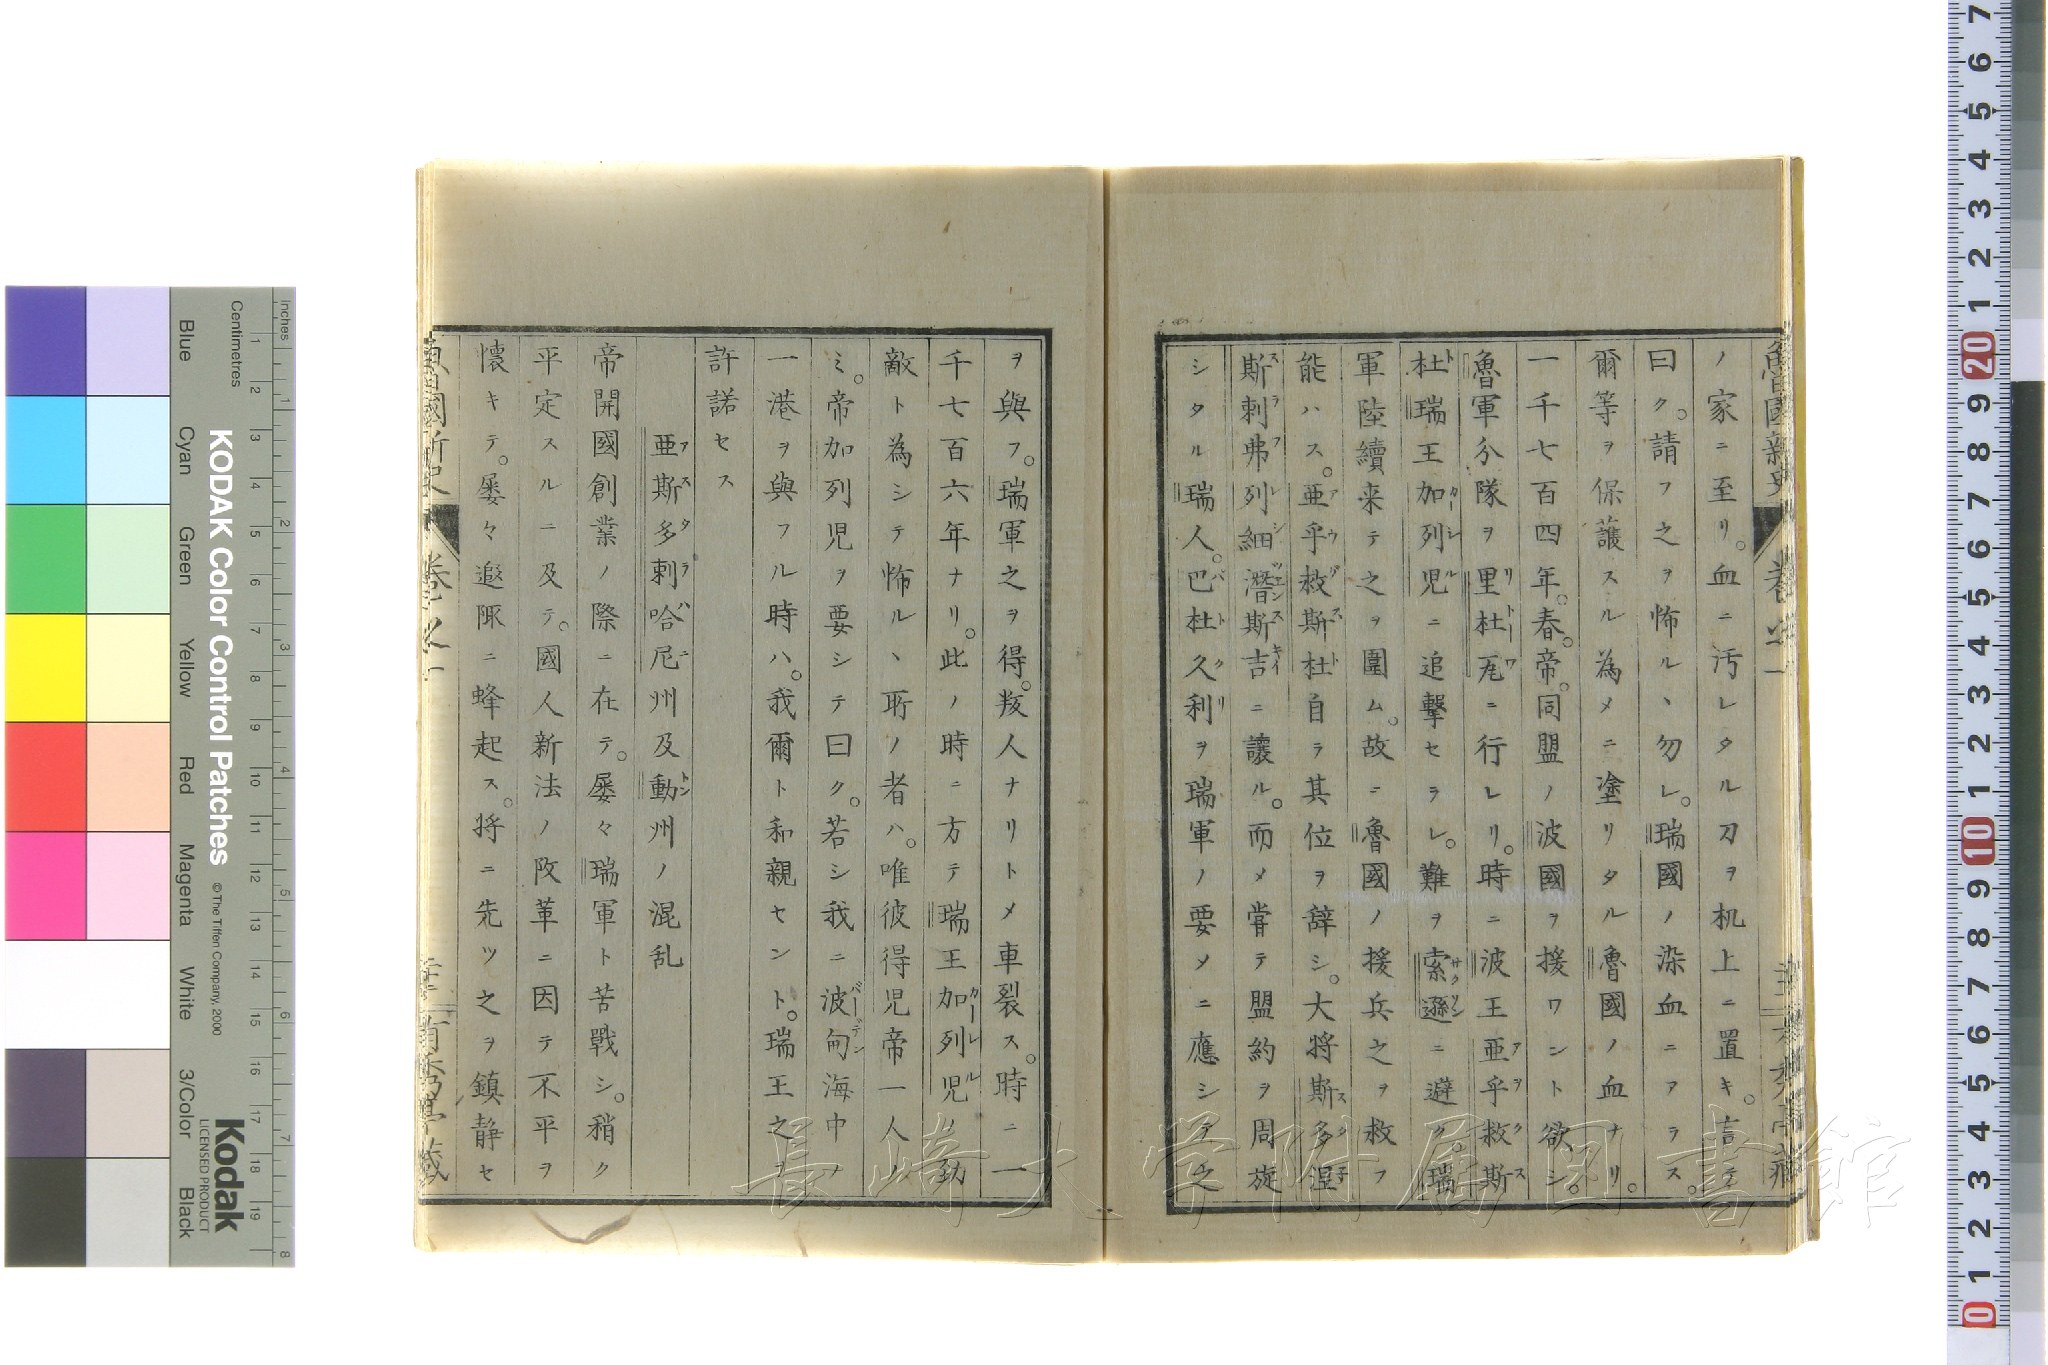 ノ家ニ至リ。血ニ汚レタル刀ヲ机上ニ置キ。告テ
曰ク。請フ之ヲ怖ルヽ勿レ。瑞國ノ染血ニアラス。
爾等ヲ保護スル為メニ塗リタル魯國ノ血ナリ。
一千七百四年。春。帝。同盟ノ波國ヲ援ワント欲シ。
魯軍分隊ヲ里杜尾ニ行レリ。時ニ波王亜乎救斯
杜瑞王加列児ニ追撃セラレ。難ヲ索遜ニ避ク。瑞
軍陸續来テ之ヲ圍ム。故ニ魯國ノ援兵之ヲ救フ
能ハス。亜乎救斯杜自ラ其位ヲ辞シ。大将斯多涅
斯刺弗列細潜斯吉ニ譲ル。而メ甞テ盟約ヲ周旋
シタル瑞人。巴杜久利ヲ瑞軍ノ要メニ應シテ之
ヲ與フ。瑞軍之ヲ得。叛人ナリトメ車裂ス。時ニ一
千七百六年ナリ。此ノ時ニ方テ瑞王加列児ノ勍
敵ト為シテ怖ルヽ所ノ者ハ。唯彼得児帝一人ノ
ミ。帝加列児ヲ要シテ曰ク。若シ我ニ波甸海中ノ
一港ヲ與フル時ハ。我爾ト和親セント。瑞王之ヲ
許諾セス
亜斯多刺哈尼州及動州ノ混乱
帝開國創業ノ際ニ在テ。屡々瑞軍ト苦戰シ。稍ク
平定スルニ及テ。國人新法ノ改革ニ因テ不平ヲ
懐キテ。屡々遐陬ニ蜂起ス。将ニ先ツ之ヲ鎮静セ
魯國新史
巻之一
長崎大学附属図書館
KODAK Color Control Patches
© The Tiffen Company, 2000
Kodak
LICENSED PRODUCT
Centimetres
Inches
Blue
Cyan
Green
Yellow
Red
Magenta
White
3/Color
Black